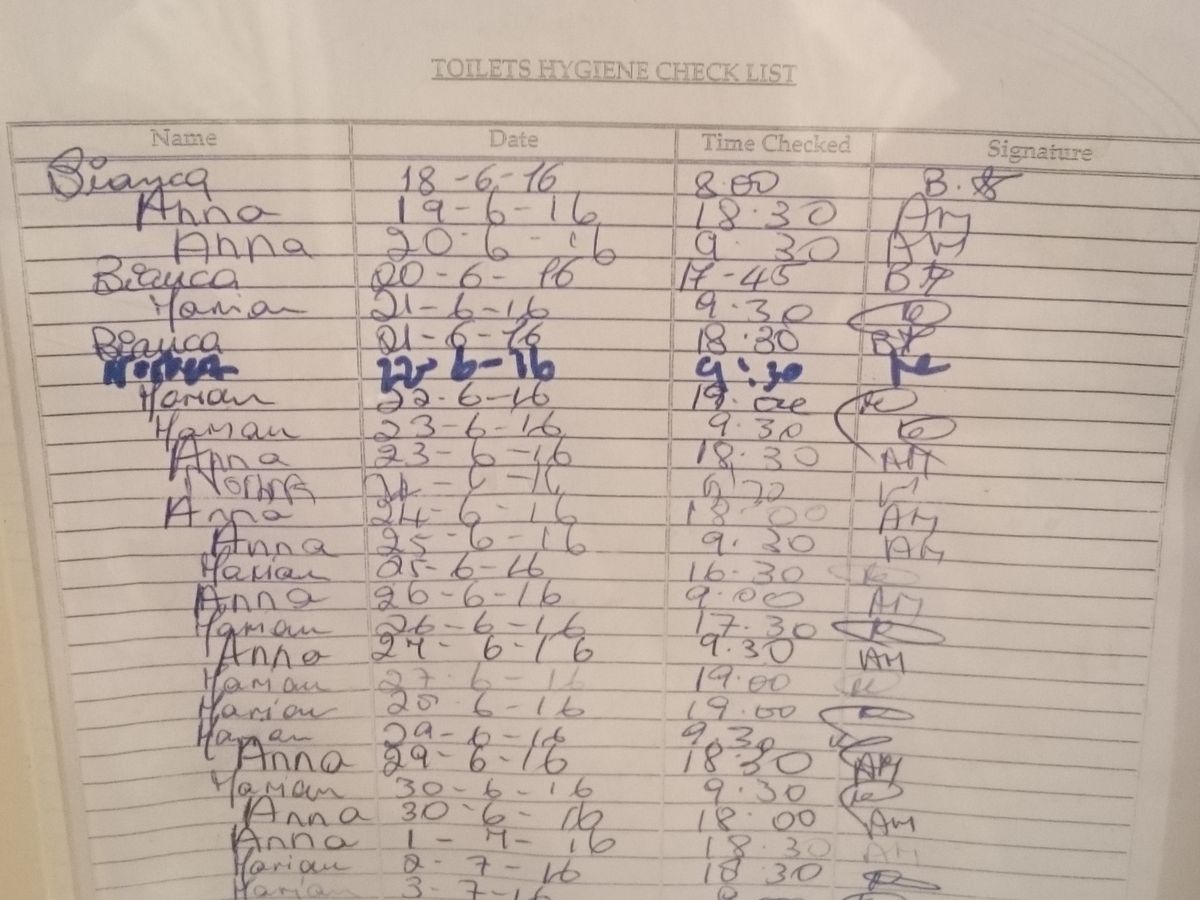 TOILETS HYGIENE CHECK LIST
Name Date Time Checked Signature
Bianca 18-6-16 8.00 B.
Anna 19-6-16 18.30 AM
Anna 20-6-16 9.30 AM
Bianca 20-6-16 17-45
Marian 21-6-16 9.30
Bianca 21-6-16 18.30
22-6-16 9:30
Marian 22-6-16
Marian 23-6-16 9.30
Anna 23-6-16 18.30 AM
Anna 24-6-16 18.00 AM
Anna 25-6-16 9.30 AM
Marian 25-6-16 16.30
Anna 26-6-16 9.00 AM
Marian 26-6-16 17.30
Anna 27-6-16 9.30 AM
Marian 27-6-16 19.00
Marian 28-6-16 19.00
Marian 29-6-16 9.30
Anna 29-6-16 18.30 AM
Marian 30-6-16 9.30
Anna 30-6-16 18.00 AM
Anna 1-7-16 18.30 AM
Marian 2-7-16 18.30
Marian 3-7-16